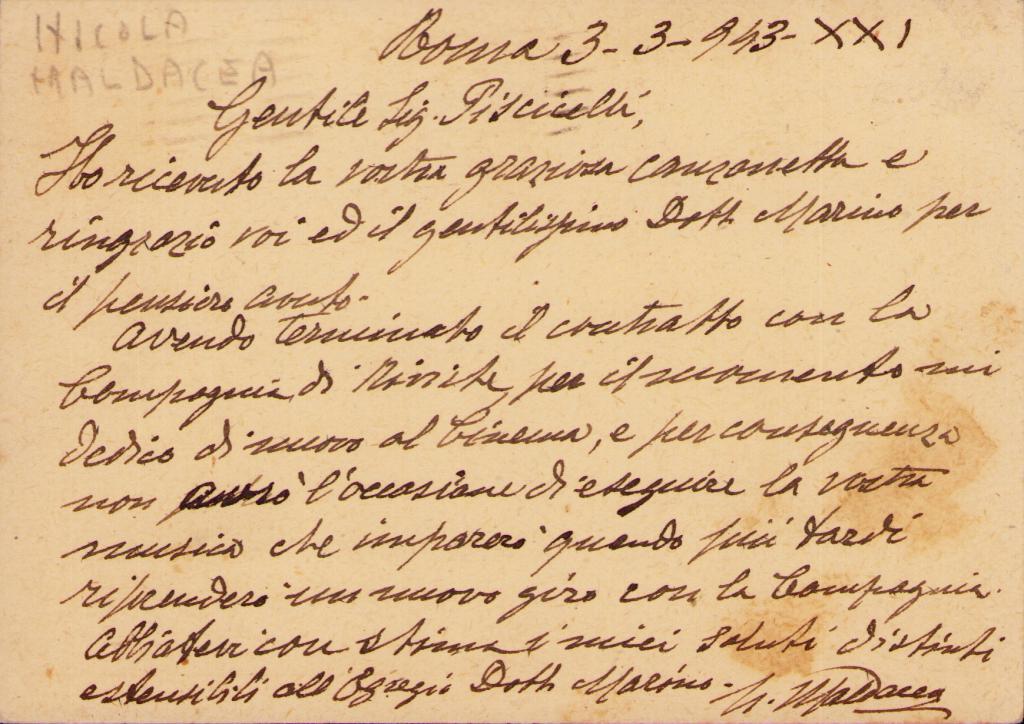 NICOLA
MALDACEA
Roma 3-3-943-XXI
Gentile Sig. Piscicelli,
Ho ricevuto la vostra graziosa canzonetta e
ringrazio voi ed il gentilissimo Dott Marino per
il pensiero avuto.
Avendo terminato il contratto con la
Compagnia di Riviste, per il momento mi
dedico di nuovo al Cinema, e per conseguenza
non avrò l'occasione di eseguire la vostra
musica che imparerò quando più tardi
riprenderò un nuovo giro con la Compagnia.
Abbiatevi con stima i miei saluti distinti
estensibili all'Egregio Dott Marino. N. Maldacea